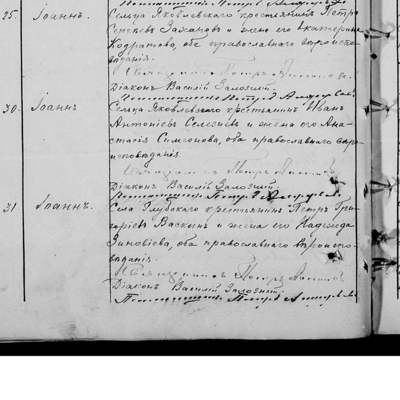 25. Іоаннъ.
Сельца Яковлевскаго крестьянинъ Петръ
Сергѣевъ Захаровъ и жена его Екатерина
Кодратова, оба православнаго вѣроиспо-
вѣданія.
Священникъ Петръ
Діаконъ Василій Залозный.
30 Іоаннъ
Сельца Яковлевскаго крестьянинъ Иванъ
Антоніевъ Селезневъ и жена его Ана-
стасія Симеонова, оба православнаго вѣро-
исповѣданія.
Священникъ Петръ
Діаконъ Василій Залозный.
31 Іоаннъ.
Села Глубокаго крестьянинъ Петръ Гри-
горіевъ Васкинъ и жена его Надежда
Зиновіева, оба православнаго вѣроиспо-
вѣданія.
Священникъ Петръ
Діаконъ Василій Залозный.